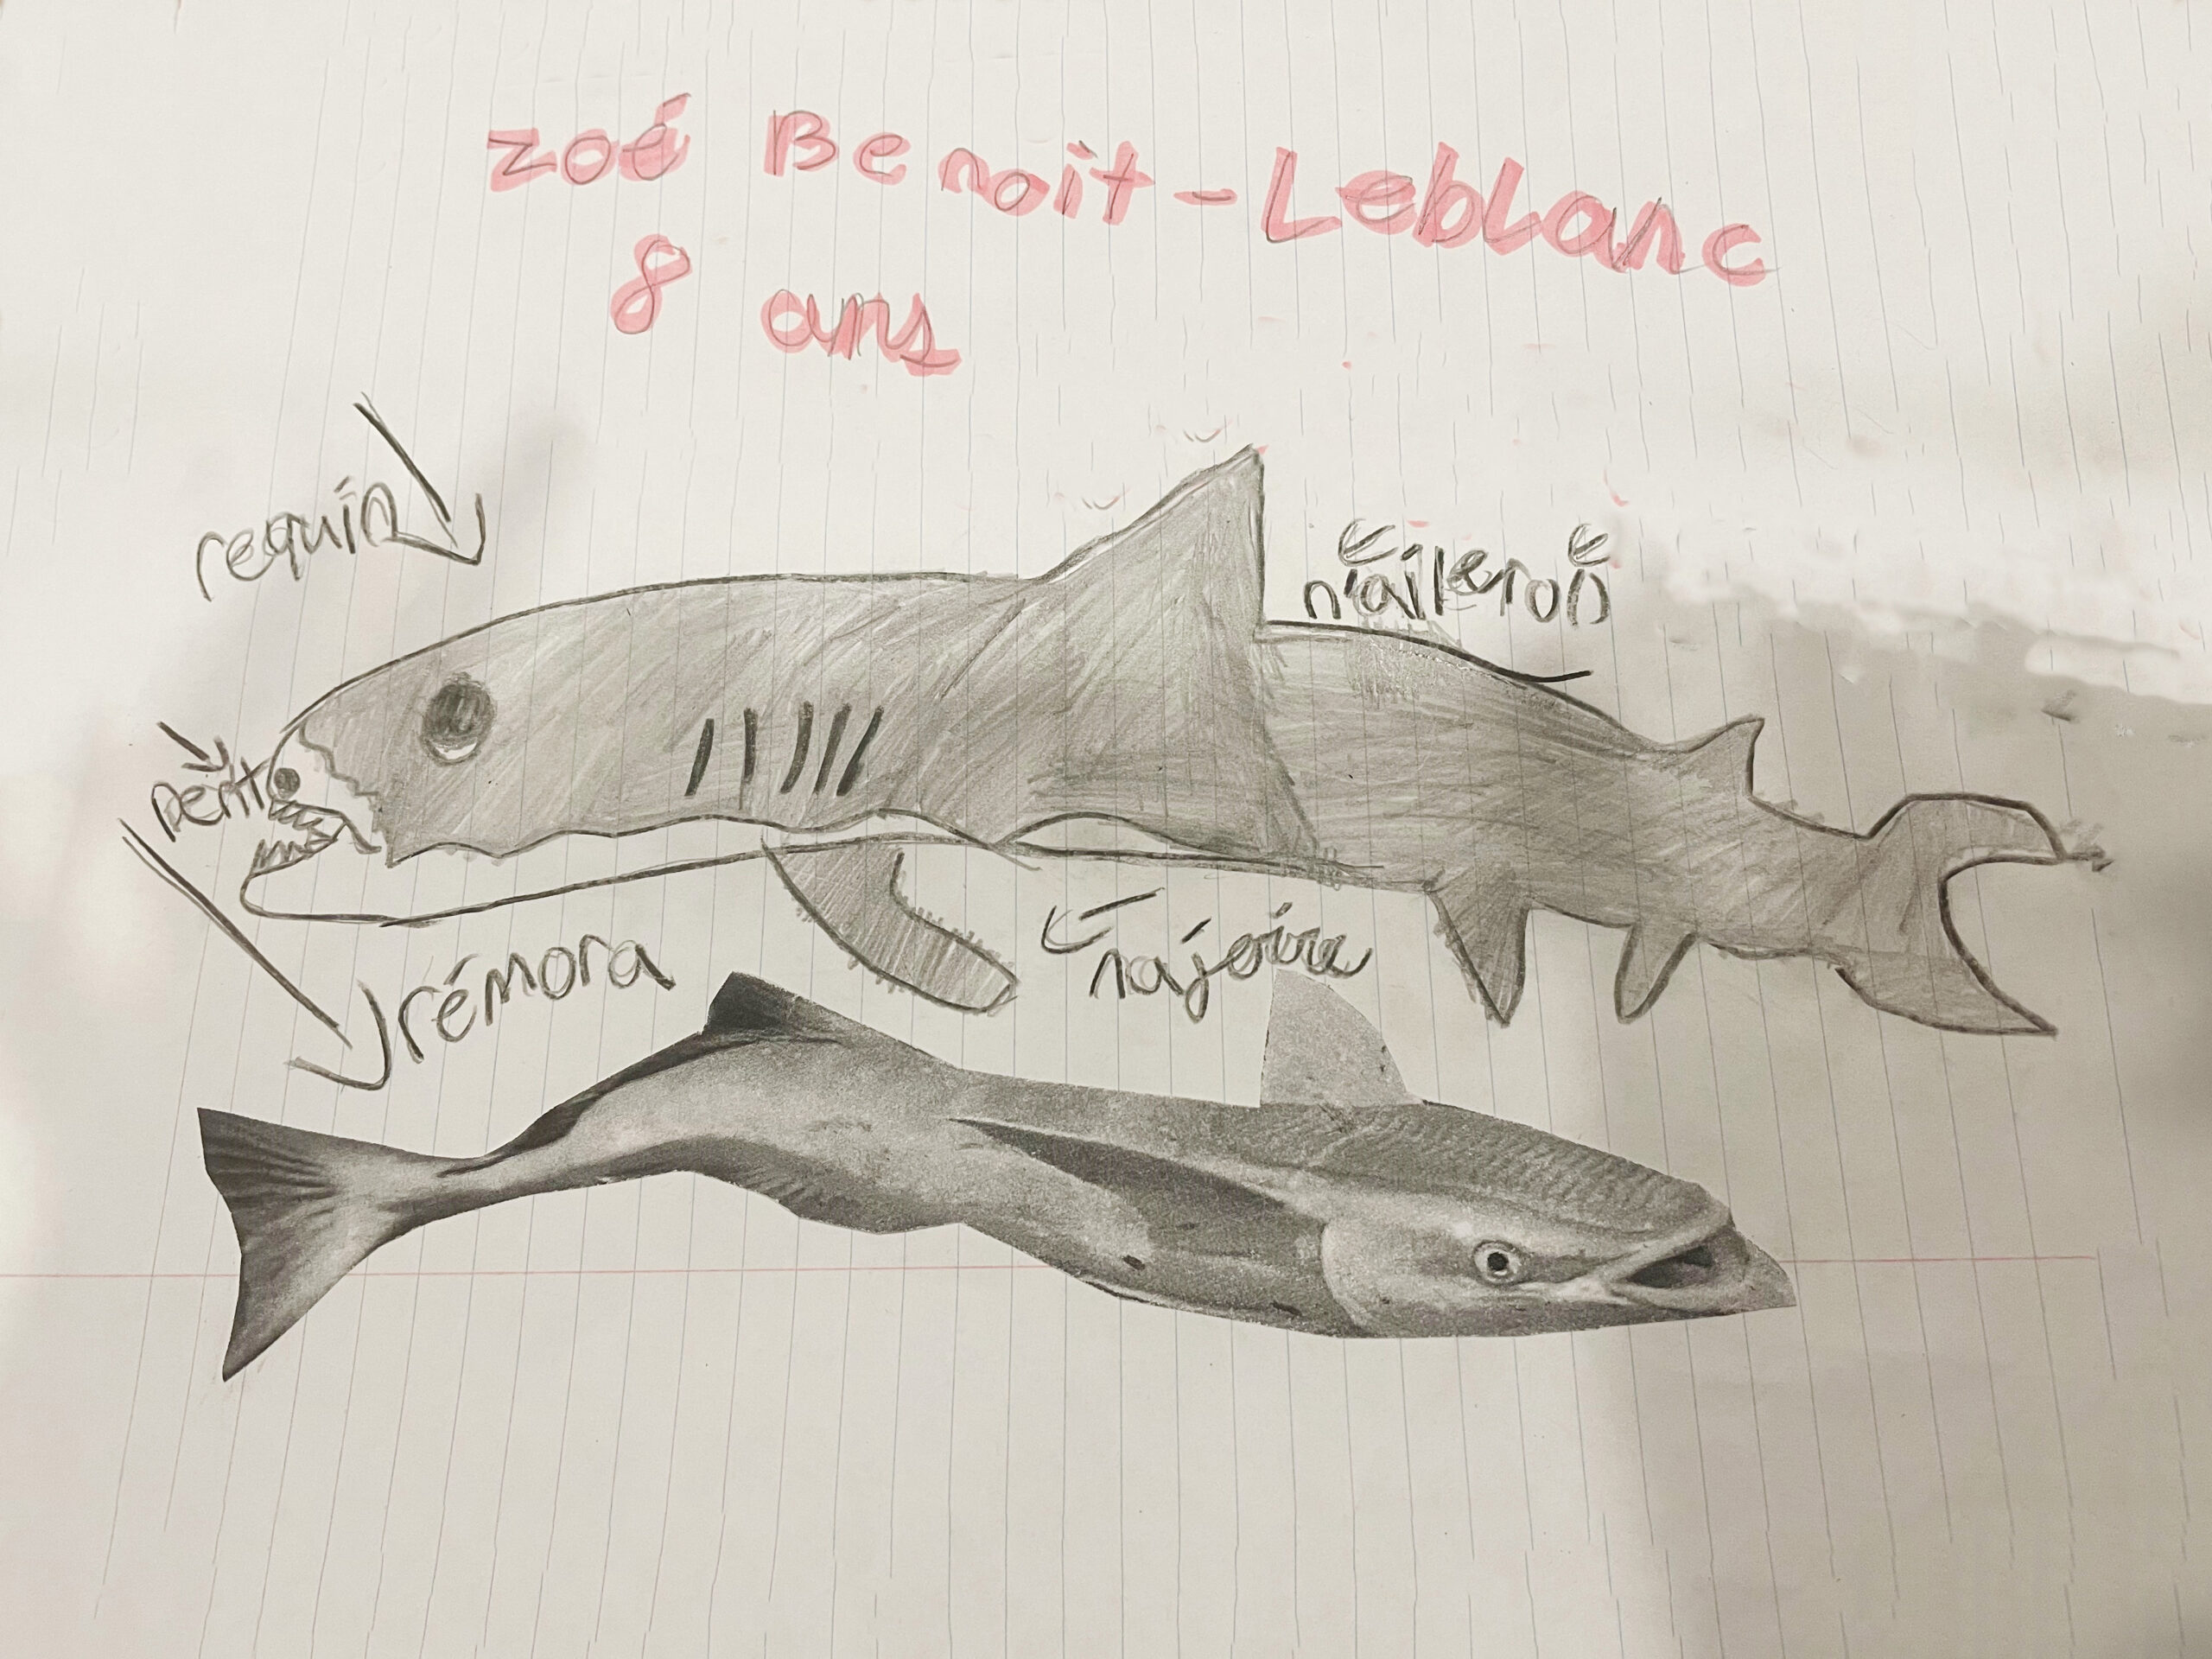 zoé Benoit-Leblanc
8 ans
requin
n'aileron
pent
rémora
najoire